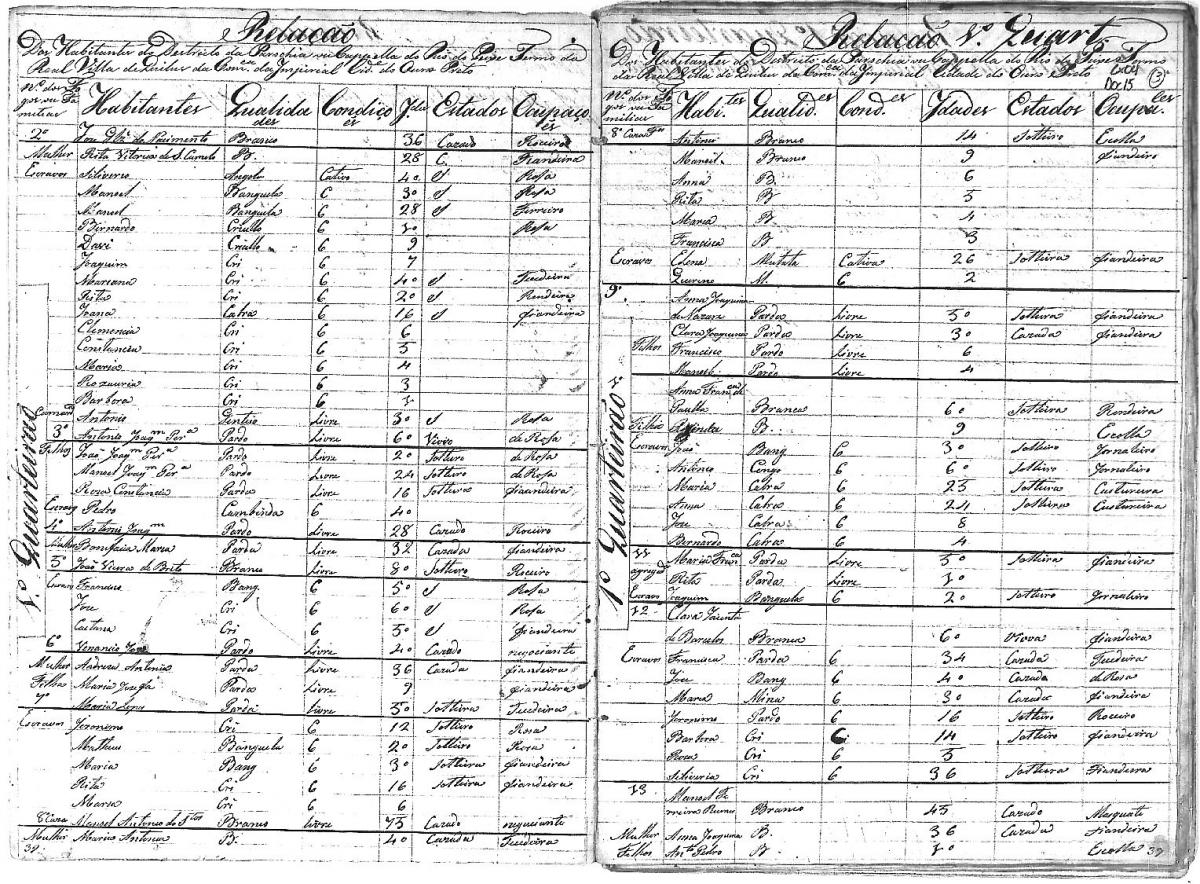 Relação
Dos Habitantes do Destricto da Parochia ou Cappella do Rio do Peixe Termo da
Real Villa de Queluz da Com.ca da Imperial Cid. do Ouro Preto
N.os dos Fo
gos ou Fa
miliar Habitantes Qualida des Condiço es Jda Estados Ocupaço es
2º do Nacimento Branco 36 Cazado Roceiro
Mulher Rita Vitoria de S. Camelo B. 28 C. Fiandeira
Escravos Silverio Angola Cativo 40 S Rosa
Manoel Banguela C 30 S Rosa
Manoel Banguela 6 28 S Ferreiro
Bernardo Criullo 6 10 Rosa
Davi Criullo 6 9
Joaquim Cri 6 7
Mareana Cri 6 40 S Teccdeira
Rita Cri 6 20 S Rendeira
Joana Cabra 6 16 S fiandeira
Clemencia Cri 6 6
Constancia Cri 6 5
Maria Cri 6 4
Rozauria Cri 6 3
Barbora Cri 6 1
Antonio Gentio Livre 30 S Rosa
3º Antonio Joaq.m Per.a Pardo Livre 60 Vivvo de Rosa
Filhos João Joaq.m Per.a Pardo Livre 20 Solteiro de Rosa
Manoel Joaq.m Per.a Pardo Livre 24 Solteiro de Rosa
Roza Constancia Parda Livre 16 Solteira fiandeira
Escravo Pedro Cambinda 6 40
4º Antonio Joaq.m Pardo Livre 28 Cazado Roceiro
Mulher Bonifacia Maria Parda Livre 32 Cazada fiandeira
5º João Vieira de Brito Branco Livre 80 Solteiro Roceiro
Escravos Francisco Bang 6 50 S Rosa
Joze Cri 6 60 S Rosa
Caetana Cri 6 50 S fiandeira
6º Venancio Joze Pardo Livre 40 Cazado negociante
Mulher Andreza Antonia Parda Livre 36 Cazada fiandeira
Filha Maria Jozefa Parda Livre 9 fiandeira
7º Maria Lopes Parda Livre 50 Solteira Tecedeira
Escravos Jeronimo Cri 6 12 Solteiro Rosa
Matheus Banguela 6 20 Solteiro Rosa
Maria Bang 6 30 Solteira fiandeira
Rita Cri 6 16 Solteira fiandeira
Maria Cri 6 6
Manoel Antonio de S.tos Branco Livre 75 Cazado negociante
Mulher Maria Antonia B. 40 Cazada Tecedeira
39
1º Quarteirão
Relação 1º Quart.
Dos Habitantes do Destricto da Parochia ou Cappella do Rio do Peixe Termo
da Real Villa de Queluz da Com.ca da Imperial Cidade do Ouro Preto
Cx04
Doc15
3
N.os dos Fo
gos ou Fa
miliar Habi.tes Qualid.es Cond.es Jdades Estados Ocupa.es
8º Antonio Branco 14 Solteiro Escolla
Manoel Branco 9 fiandeiro
Anna B 6
Rita B 5
Maria B. 4
Francisca B 3
Escravos Elena Mulata Cativa 26 Solteira fiandeira
Querino M. 6 2
9º Anna Joaquina
de Nazare Parda Livre 50 Solteira fiandeira
Clara Joaquina Parda Livre 30 Cazada Fiandeira
Filhos Francisco Pardo Livre 6
Manoel Pardo Livre 4
Anna Fran.ca de
Paulla Branca 60 Solteira Rendeira
Filho B. 9 Escolla
Escravos João Bang 6 30 Solteiro Jornaleiro
Antonio Congo 6 60 Solteiro Jornaleiro
Maria Cabra 6 25 Solteira Custureira
Anna Cabra 6 24 Solteira Custureira
Joze Cabra 6 8
Bernardo Cabra 6 4
11 Maria Fran.ca Parda Livre 50 Solteira fiandeira
agregada Rita Parda Livre 10
Escravo Joaquim Banguela 6 20 Solteiro Jornaleiro
12 Clara Jacinta
de Barcelos Branca 60 Viova fiandeira
Escravos Francisca Parda 6 34 Cazada Tecedeira
Joze Bang 6 40 Cazado de Rosa
Maria Mina 6 30 Cazada fiandeira
Jeronimo Pardo 6 16 Solteiro Roceiro
Barbora Cri 6 14 Solteira fiandeira
Roza Cri 6 5
Silveria Cri 6 36 Solteira Fiandeira
13 Manoel Fe
rreira Branco 45 Cazado Mascate
Mulher Anna Joaquina B. 36 Cazada fiandeira
Filhos An.to Pedro B. 10 Escolla
39
1º Quarteirão